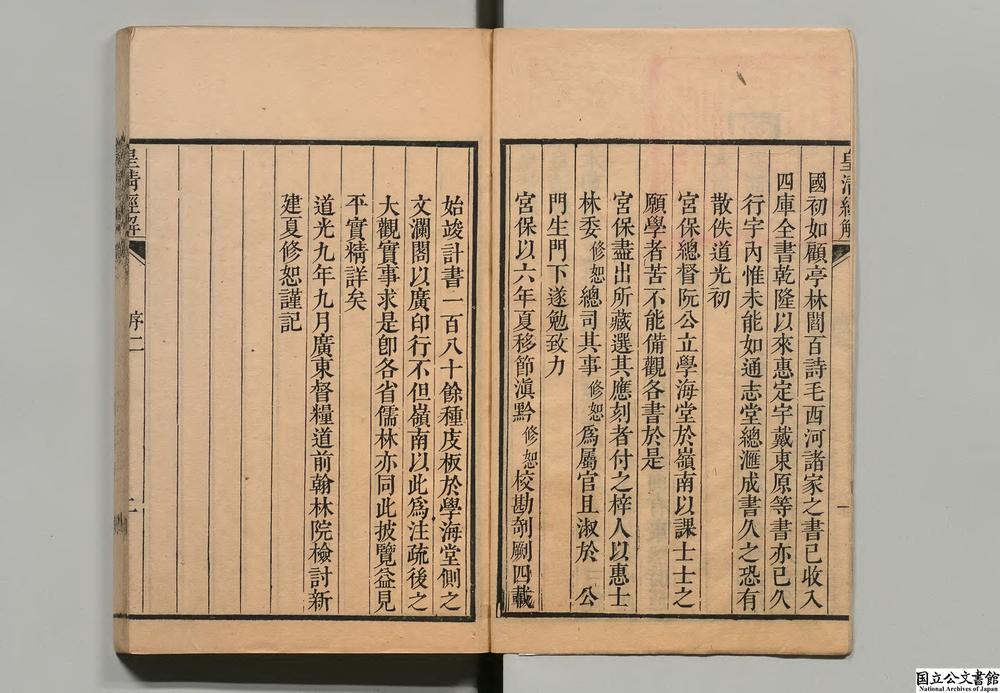 皇清經解
國初如顧亭林閻百詩毛西河諸家之書已收入
四庫全書乾隆以來惠定宇戴東原等書亦已久
行宇內惟未能如通志堂總滙成書久之恐有
散佚道光初
宮保總督阮公立學海堂於嶺南以課士士之
願學者苦不能備觀各書於是
宮保盡出所藏選其應刻者付之梓人以惠士
林委修恕總司其事修恕爲屬官且淑於 公
門生門下遂勉致力
宮保以六年夏移節滇黔修恕校勘剞劂四載
始竣計書一百八十餘種庋板於學海堂側之
文瀾閣以廣印行不但嶺南以此爲注疏後之
大觀實事求是卽各省儒林亦同此披覽益見
平實精詳矣
道光九年九月廣東督糧道前翰林院檢討新
建夏修恕謹記
皇清經解
序
二
国立公文書館
National Archives of Japan